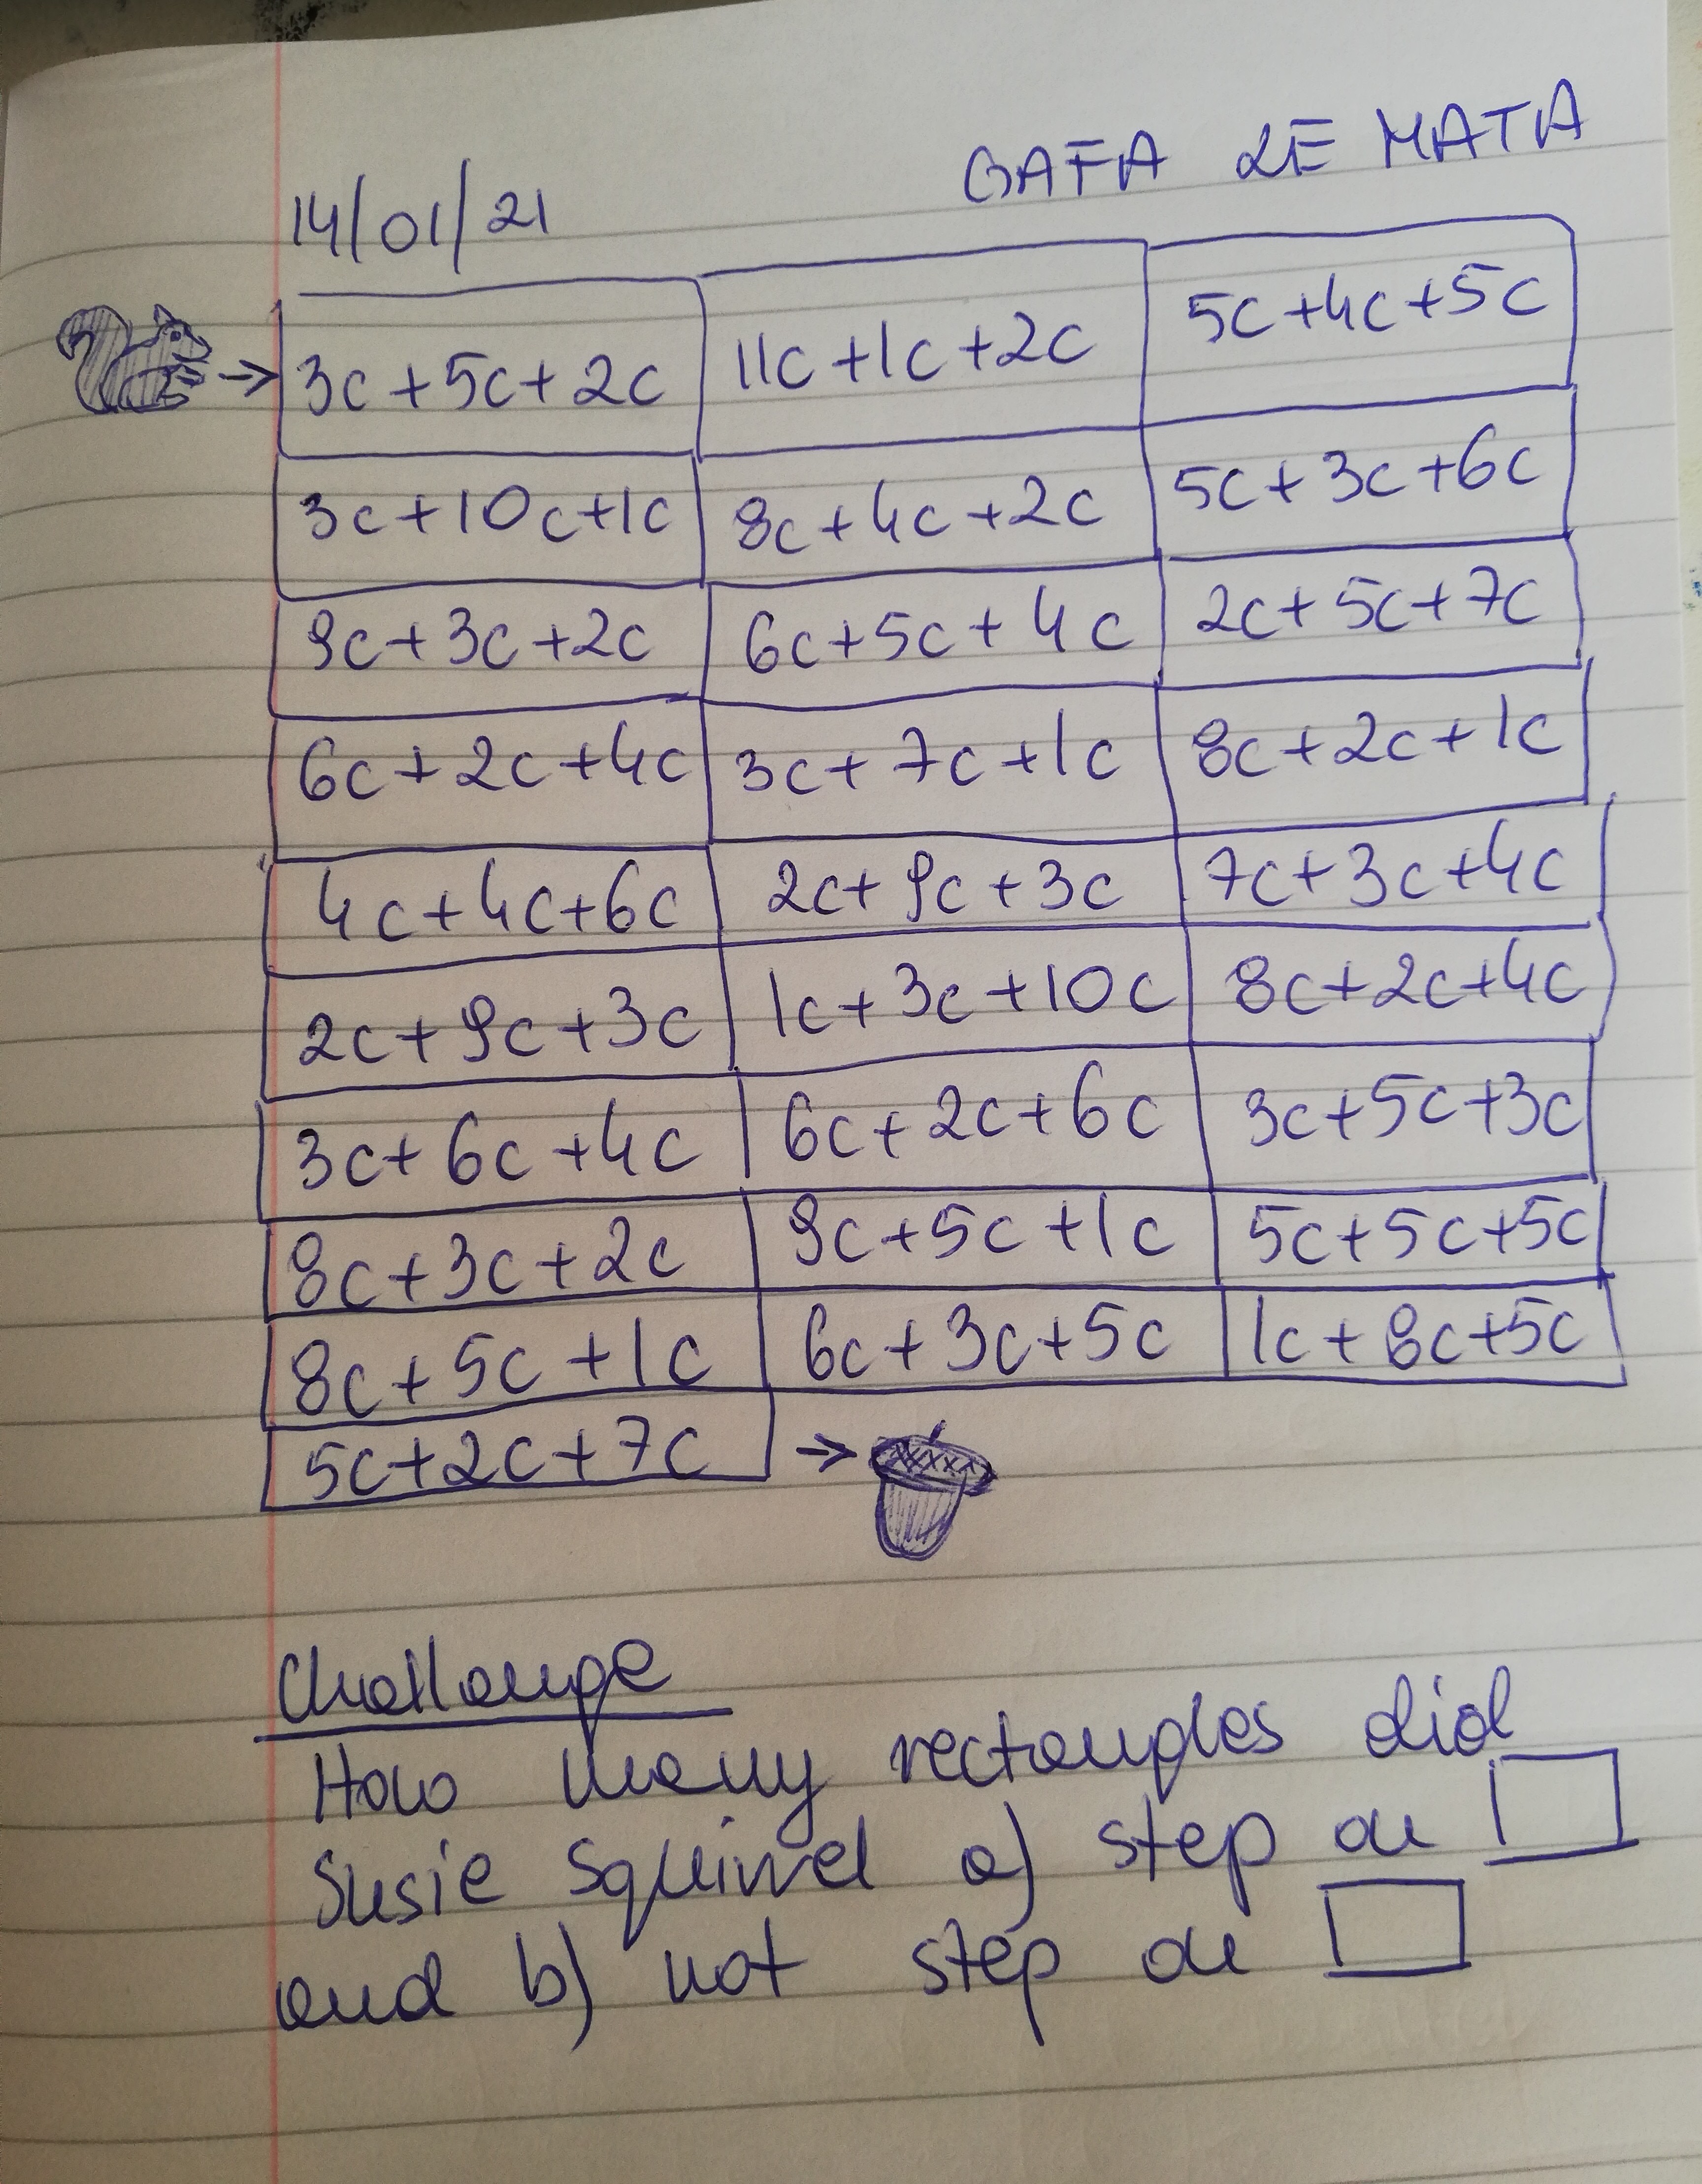 GAFA LE MATA
14/01/21
→ 3c + 5c + 2c 11c + 1c + 2c 5c + 4c + 5c
3c + 10c + 1c 8c + 4c + 2c 5c + 3c + 6c
9c + 3c + 2c 6c + 5c + 4c 2c + 5c + 7c
6c + 2c + 4c 3c + 7c + 1c 8c + 2c + 1c
4c + 4c + 6c 2c + 9c + 3c 7c + 3c + 4c
2c + 9c + 3c 1c + 3c + 10c 8c + 2c + 4c
3c + 6c + 4c 6c + 2c + 6c 3c + 5c + 3c
8c + 3c + 2c 9c + 5c + 1c 5c + 5c + 5c
8c + 5c + 1c 6c + 3c + 5c 1c + 8c + 5c
5c + 2c + 7c →
Challenge
How many rectangles did
Susie Squirrel a) step on
and b) not step on